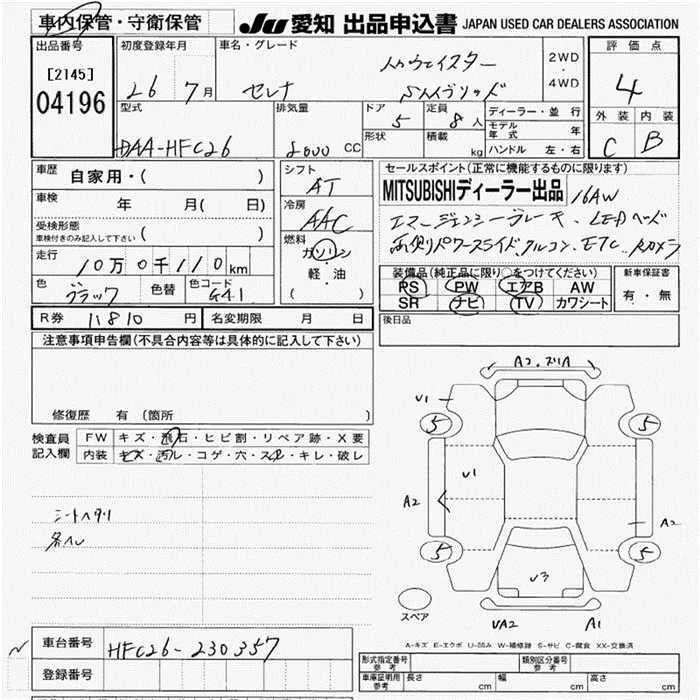 車内保管・守衛保管 JU 愛知 出品申込書 JAPAN USED CAR DEALERS ASSOCIATION
出品番号 初度登録年月 車名・グレード 評価点
[2145] 2WD
04196 26 7月 セレナ ハイウェイスター 4WD 4
S.ハイブリッド
型式 排気量 ドア 定員 ディーラー・並行 外装 内装
5 8人 モデル年式 年
DAA-HFC26 2000 CC 形状 積載 kg ハンドル 左・右 C B
車歴 自家用・( ) シフト AT セールスポイント(正常に機能するものに限ります)
車検 年 月( 日) 冷房 AAC MITSUBISHIディーラー出品 16AW
受検形態 車検付きのみ記入して下さい ( ) エマージェンシーブレーキ、LEDヘッド
走行 10万0千110km 燃料 ガソリン 両側パワースライド、クルコン、ETC、Rカメラ
軽・油
( )
色 ブラック 色替 色コード G41 装備品(純正品に限り○をつけてください) 新車保証書
PS PW エアB AW 有・無
SR ナビ TV カワシート
R券 11810 円 名変期限 月 日 後日品
注意事項申告欄(不具合内容等は具体的に記入して下さい)
修復歴 有(箇所 )
検査員記入欄 FW キズ・飛石・ヒビ割・リペア跡・X要
内装 キズ・汚レ・コゲ・穴・スレ・キレ・破レ
シートヘタリ
A2
U1
5 5
U1
A2 A2
5 5
U3
スペア UA2 A1
A-キズ E-エクボ U-凹み W-補修跡 S-サビ C-腐食 XX-交換済
車台番号 HFC26-230357
登録番号
形式指定番号 参考 類別区分番号 参考
車庫証明用 参考 長さ cm 幅 cm 高さ cm